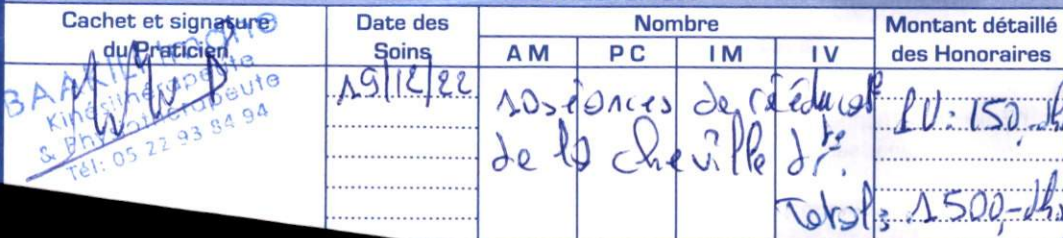 Cachet et signature
du Praticien
Date des
Soins
Nombre
AM PC IM IV
Montant détaillé
des Honoraires
BAAKILI
Kinésithérapeute
& Physiothérapeute
Tél: 05 22 93 84 94
19/12/22
10 séances de rééducat°
de la cheville dr^te.
PU: 150,-dh
Total: 1500,-dhs